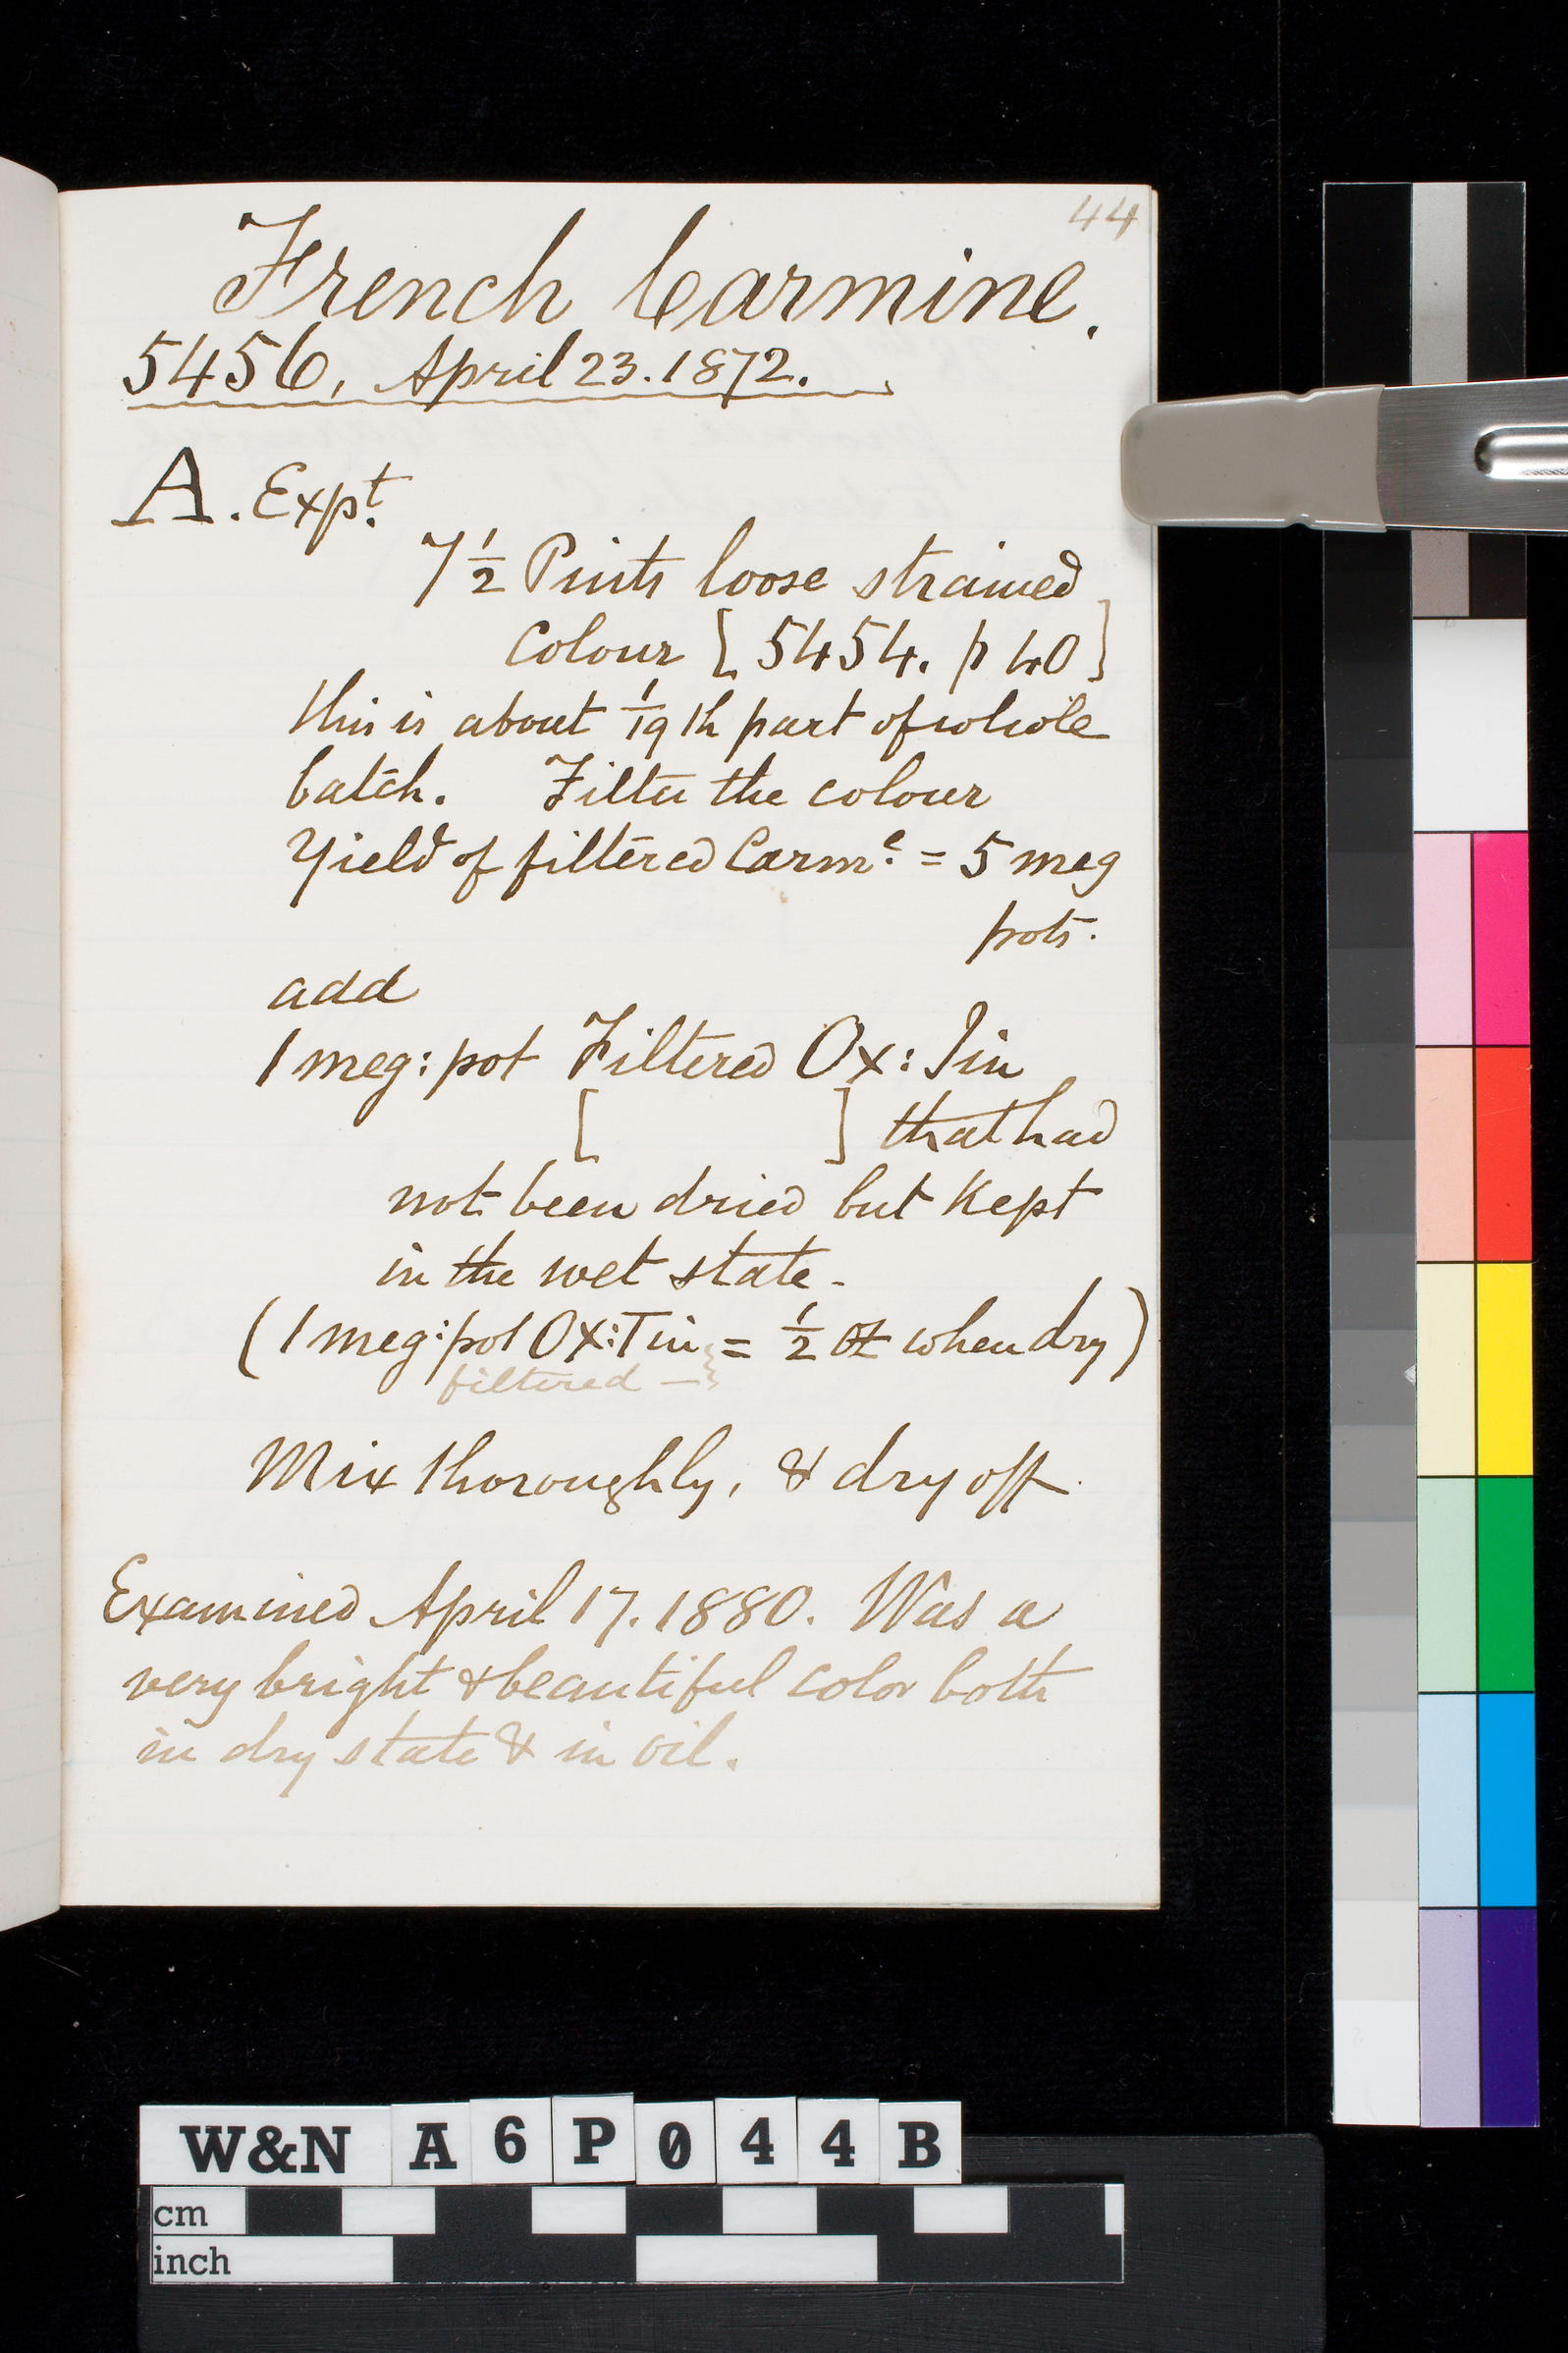 44
French Carmine.
5456, April 23. 1872.
A. Expt.
7 1/2 Pints loose strained
Colour [5454. p 40]
this is about 1/19 th part of whole
batch. Filter the colour
Yield of filtered Carme. = 5 meg
pots.
add
1 meg: pot Filtered Ox: Tin
[ ] that had
not been dried but kept
in the wet state.
(1 meg: pot Ox: Tin = 1/2 oz when dry)
filtered —
Mix thoroughly, & dry off.
Examined April 17. 1880. Was a
very bright & beautiful color both
in dry state & in oil.
W&N A6P044B
cm
inch